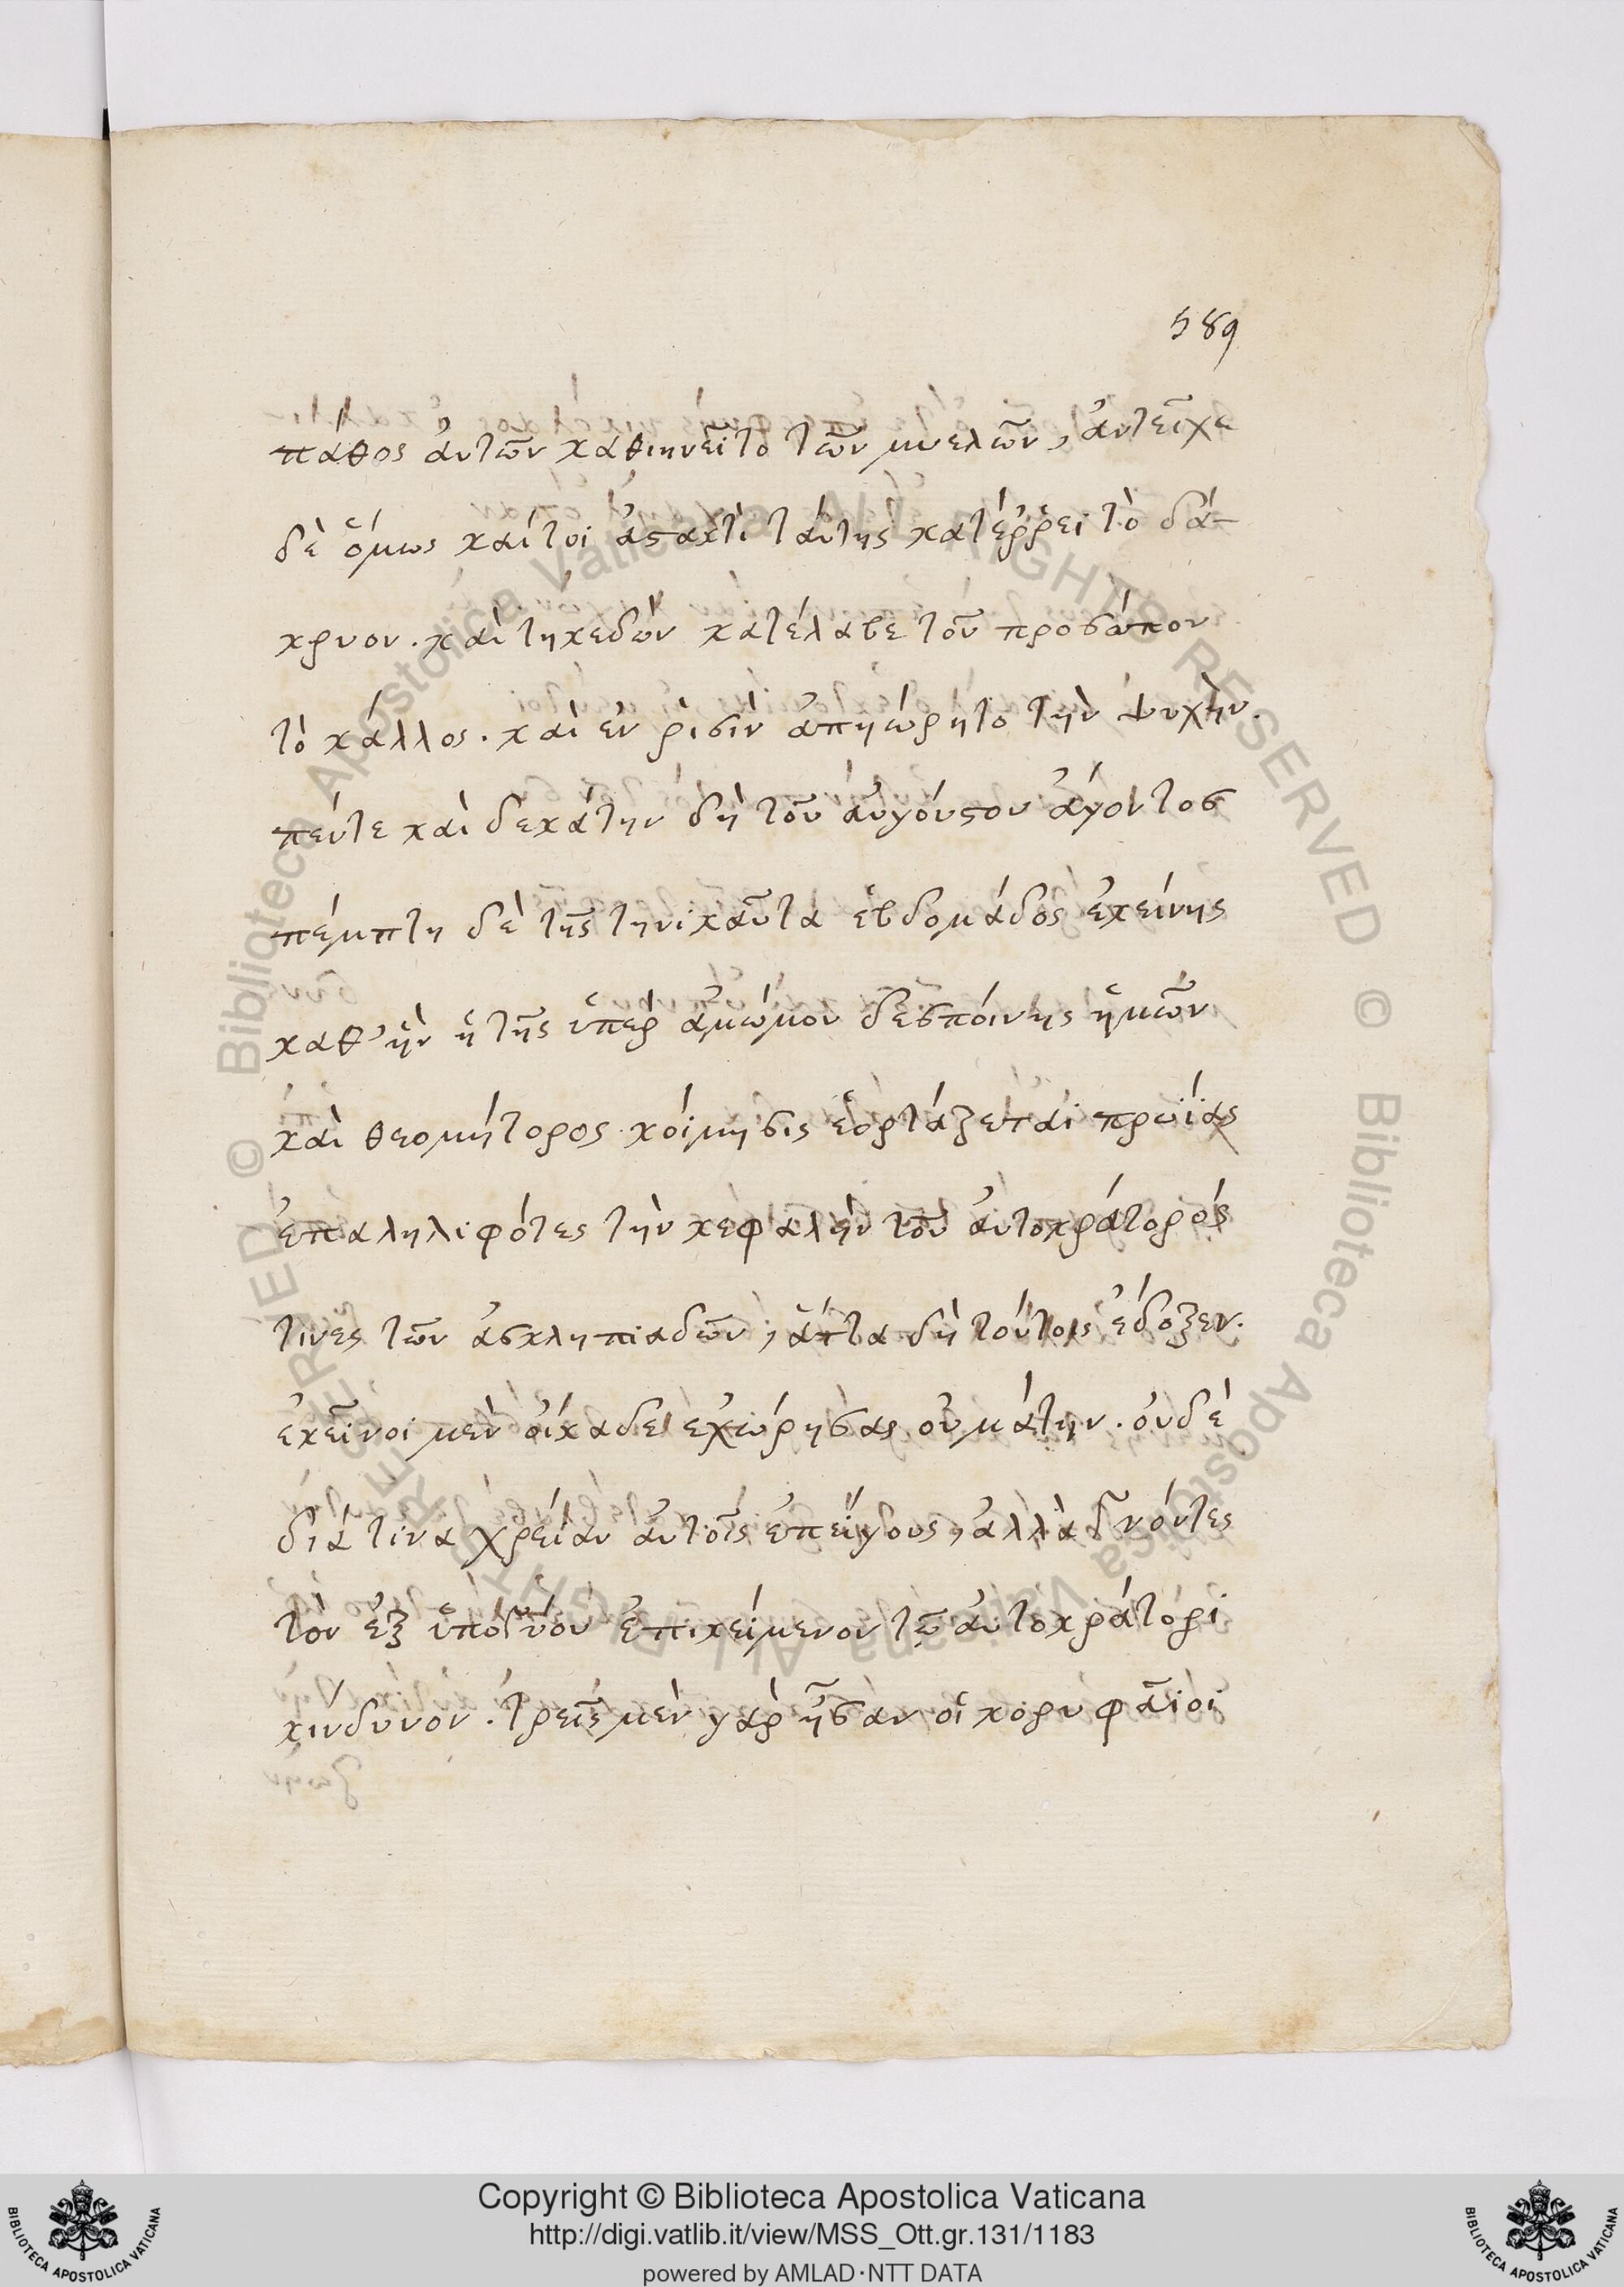 589
πάθος ἀυτῶν καθικνεῖτο τῶν μυελῶν, ἀντεῖχε
δὲ ὅμως καίτοι ἀστακτὶ ταύτης κατέρρει τὸ δά-
κρυον. καὶ τηκεδὼν κατέλαβε τοῦ προσώπου
τὸ κάλλος. καὶ ἐν ῥισὶν ἀπηώρητο τὴν ψυχήν.
πέντε καὶ δεκάτην δὴ τοῦ ἀυγούστου ἄγοντος
πέμπτη δὲ τῆς τηνικαῦτα ἑβδομάδος ἐκείνης
καθ' ἣν ἡ τῆς ὑπὲρ ἀμώμου δεσπόινης ἡμῶν
καὶ θεομήτορος κοίμησις ἑορτάζεται πρωΐας
ἐπαληλιφότες τὴν κεφαλὴν τοῦ ἀυτοκράτορός
τινες τῶν ἀσκληπιαδῶν, ἅττα δὴ τούτοις ἔδοξεν.
ἐκεῖνοι μὲν ὀίκαδε ἐχώρησαν οὐ μάτην. ὀυδὲ
διά τινα χρείαν ἀυτοῖς ἐπείγουσαν, ἀλλὰ γνόντες
τὸν ἐξ ὑπογύου ἐπικείμενον τῷ ἀυτοκράτορι
κίνδυνον. τρεῖς μὲν γὰρ ἦσαν οἱ κορυφαῖοι
Copyright © Biblioteca Apostolica Vaticana
http://digi.vatlib.it/view/MSS_Ott.gr.131/1183
powered by AMLAD·NTT DATA
BIBLIOTECA APOSTOLICA VATICANA
BIBLIOTECA APOSTOLICA VATICANA
© Biblioteca Apostolica Vaticana ALL RIGHTS RESERVED © Biblioteca Apostolica Vaticana ALL RIGHTS RESERVED